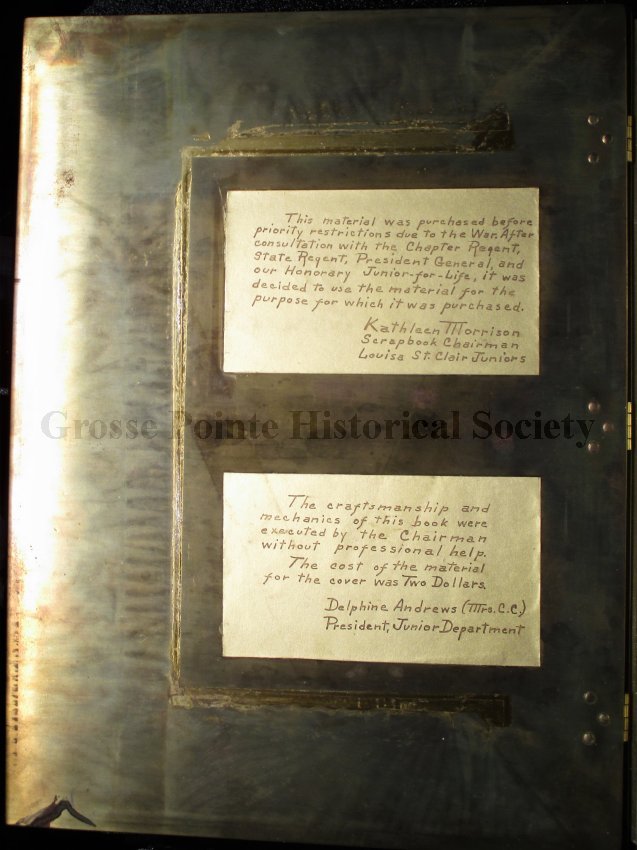 This material was purchased before
priority restrictions due to the War. After
consultation with the Chapter Regent,
State Regent, President General, and
our Honorary Junior-for-Life, it was
decided to use the material for the
purpose for which it was purchased.
Kathleen Morrison
Scrapbook Chairman
Louisa St. Clair Juniors
Grosse Pointe Historical Society
The craftsmanship and
mechanics of this book were
executed by the Chairman
without professional help.
The cost of the material
for the cover was Two Dollars.
Delphine Andrews (Mrs. C.C.)
President, Junior Department